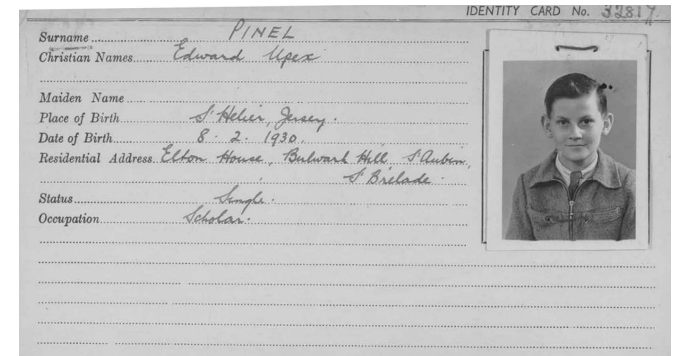 IDENTITY CARD No. 32817
Surname PINEL
Christian Names Edward Upex
Maiden Name
Place of Birth St Helier, Jersey.
Date of Birth 8. 2. 1930.
Residential Address Elton House, Bulwark Hill St Aubin,
St Brelade.
Status Single.
Occupation Scholar.